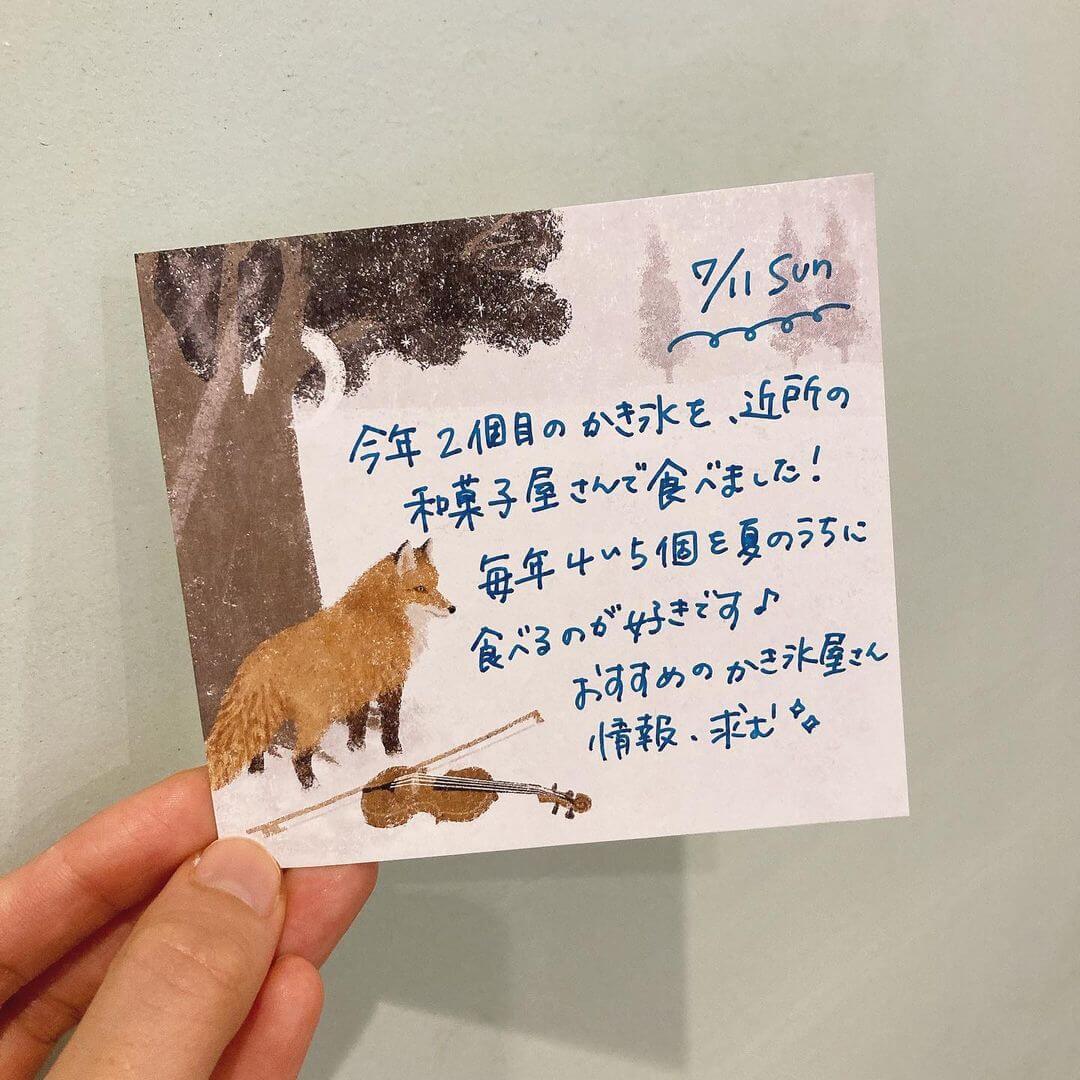 7/11 Sun
今年2個目のかき氷を、近所の
和菓子屋さんで食べました!
毎年4~5個を夏のうちに
食べるのが好きです♪
おすすめのかき氷屋さん
情報、求む